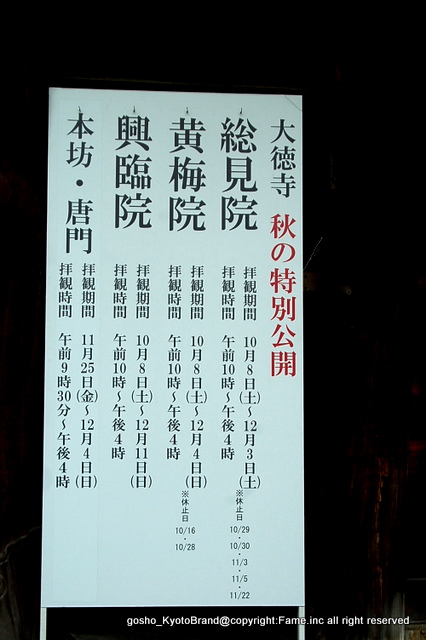 大徳寺 秋の特別公開
総見院
拝観期間 10月8日(土)～12月3日(土)
拝観時間 午前10時～午後4時
※休止日 10/29・10/30・11/3・11/5・11/22
黄梅院
拝観期間 10月8日(土)～12月4日(日)
拝観時間 午前10時～午後4時
※休止日 10/16・10/28
興臨院
拝観期間 10月8日(土)～12月11日(日)
拝観時間 午前10時～午後4時
本坊・唐門
拝観期間 11月25日(金)～12月4日(日)
拝観時間 午前9時30分～午後4時
gosho_KyotoBrand@copyright:Fame.inc all right reserved